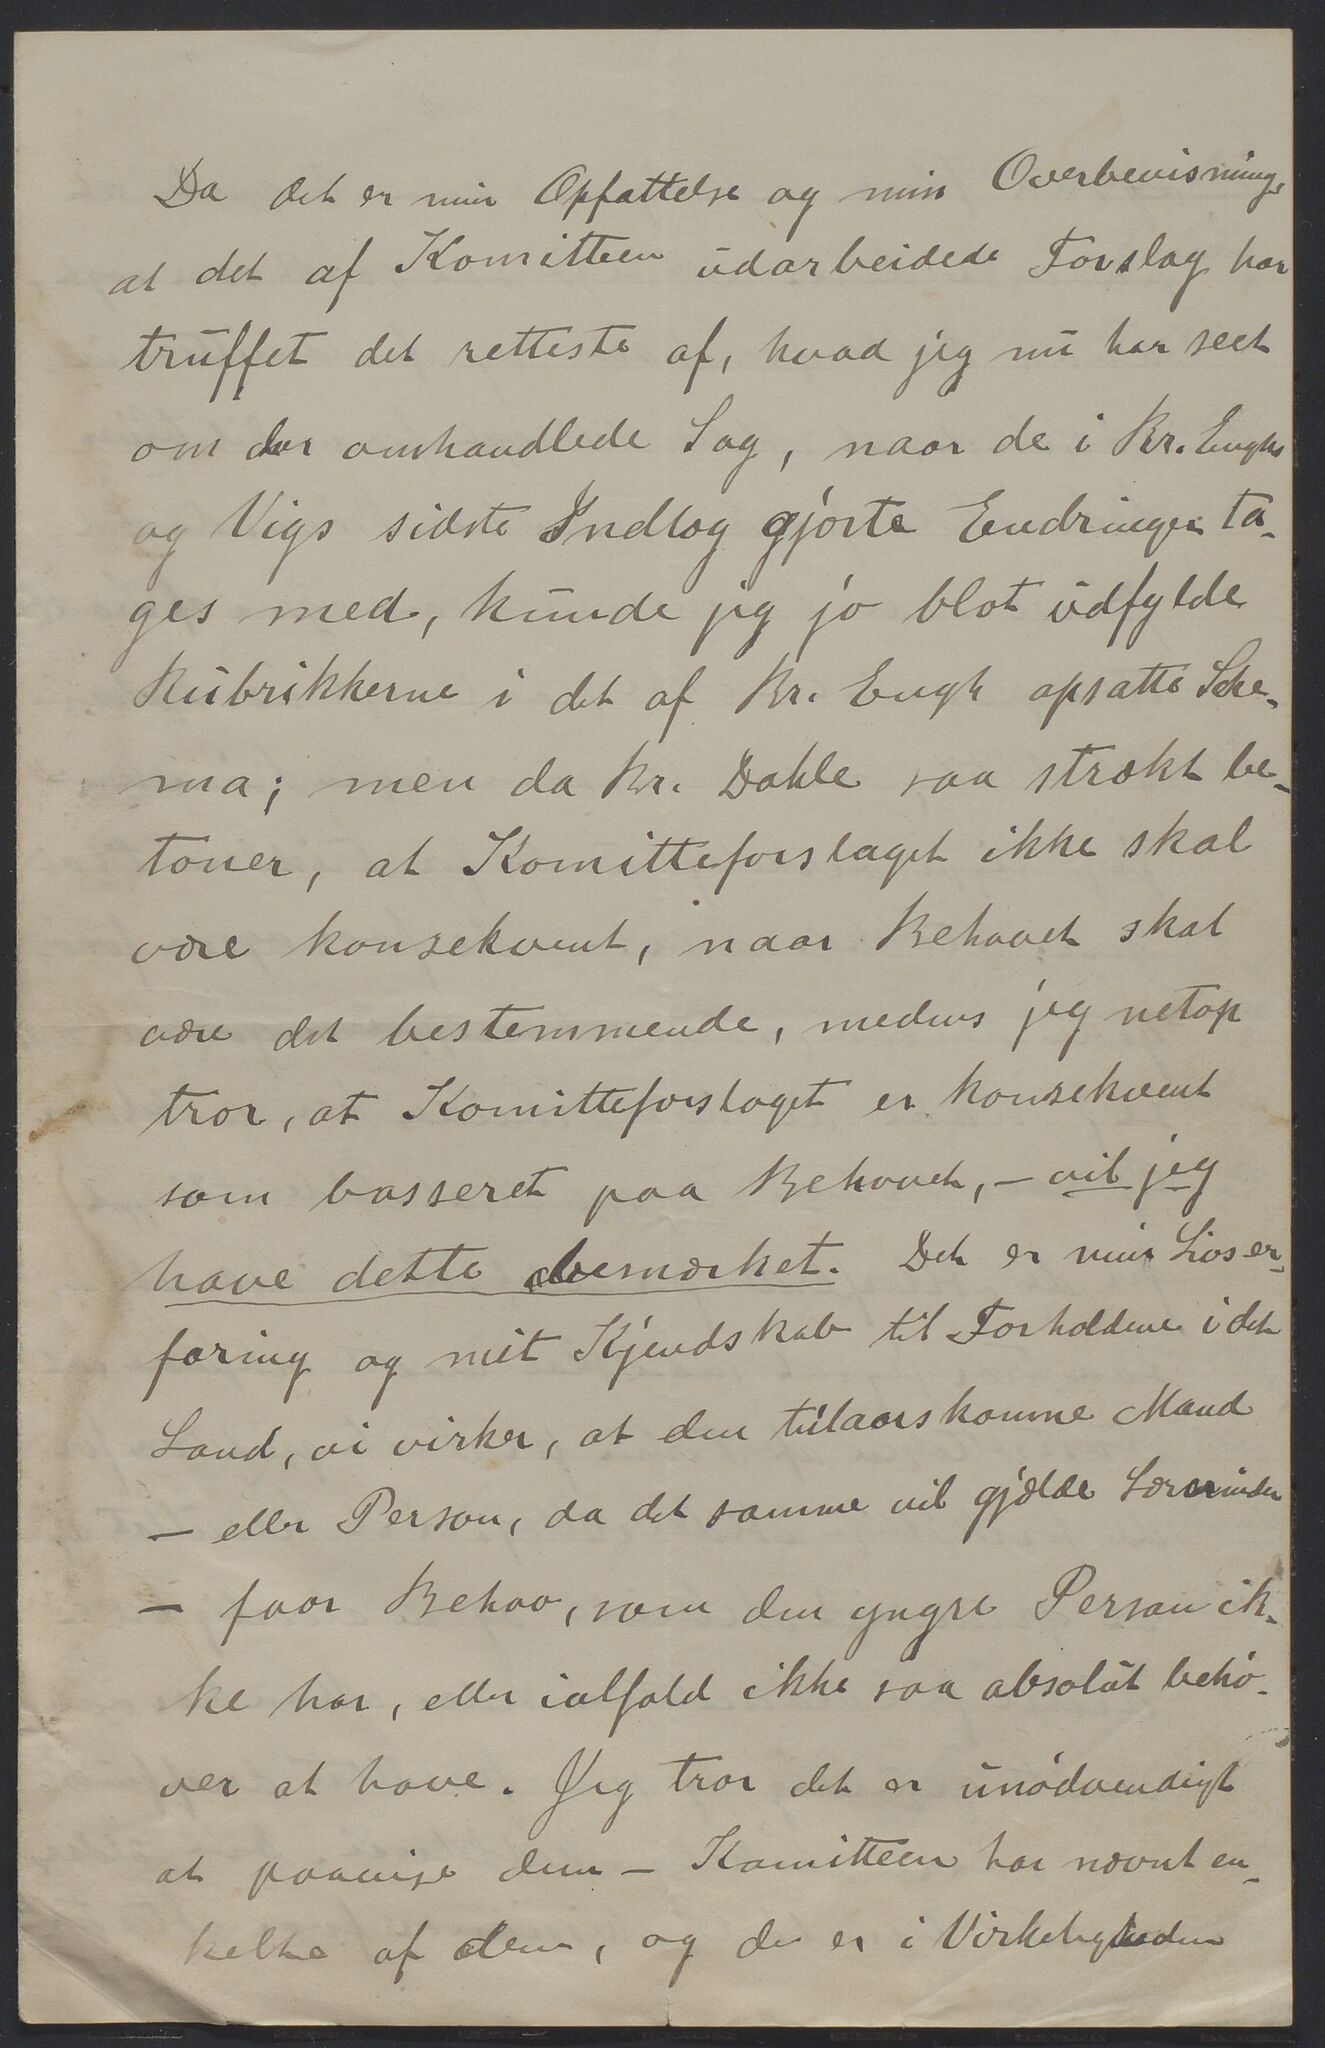 Da det er min Opfattelse og min Overbevisning,
at det af Komitteen udarbeidede Forslag har
truffet det retteste af, hvad jeg nu har seet
om den omhandlede Sag, naar de i Br. Enghs
og Vigs sidste Indlæg gjorte Endringer ta-
ges med, kunde jeg jo blot udfylde
Rubrikkerne i det af Br. Engh opsatte Sche-
ma; men da Br. Dahle saa strækt be-
toner, at Komitteforslaget ikke skal
være konsekvent, naar Behovet skal
være det bestemmende, medens jeg netop
tror, at Komitteforslaget er konsekvent
som basseret paa Behovet, – vil jeg
have dette bemærket. Det er min Livser-
faring og mit Kjendskab til Forholdene i det
Land, vi virker, at den tilaarskomne Mand
– eller Person, da det samme vil gjælde Lærerinder
– faar Behov, som den yngre Person ik-
ke har, eller ialfald ikke saa absolut behø-
ver at have. Jeg tror det er unødvendigt
at paavise dem – Komitteen har nævnt en-
kelte af dem, og de er i Virkeligheden